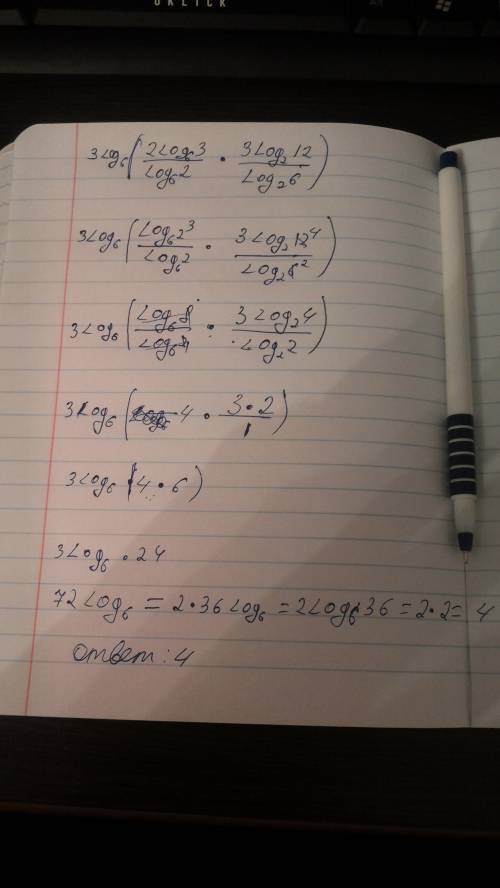 OKLICK
3Log₆(2Log₆3/Log₆2 · 3Log₂12/Log₂6)
3Log₆(Log₆2³/Log₆2 · 3Log₂12⁴/Log₂6²)
3Log₆(Log₆8/Log₆4 · 3Log₂4/Log₂2)
3Log₆(4 · 3·2/1)
3Log₆(4·6)
3Log₆·24
72Log₆ = 2·36Log₆ = 2Log₆·36 = 2·2 = 4
ответ: 4